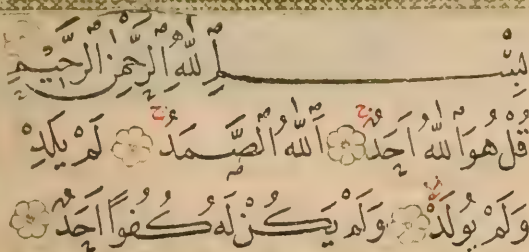 بِسْمِ اللهِ الرَّحْمٰنِ الرَّحِيْمِ
قُلْ هُوَ اللهُ اَحَدٌ ۝ اَللهُ الصَّمَدُ ۝ لَمْ يَلِدْ
وَلَمْ يُولَدْ ۝ وَلَمْ يَكُنْ لَهُ كُفُوًا اَحَدٌ ۝